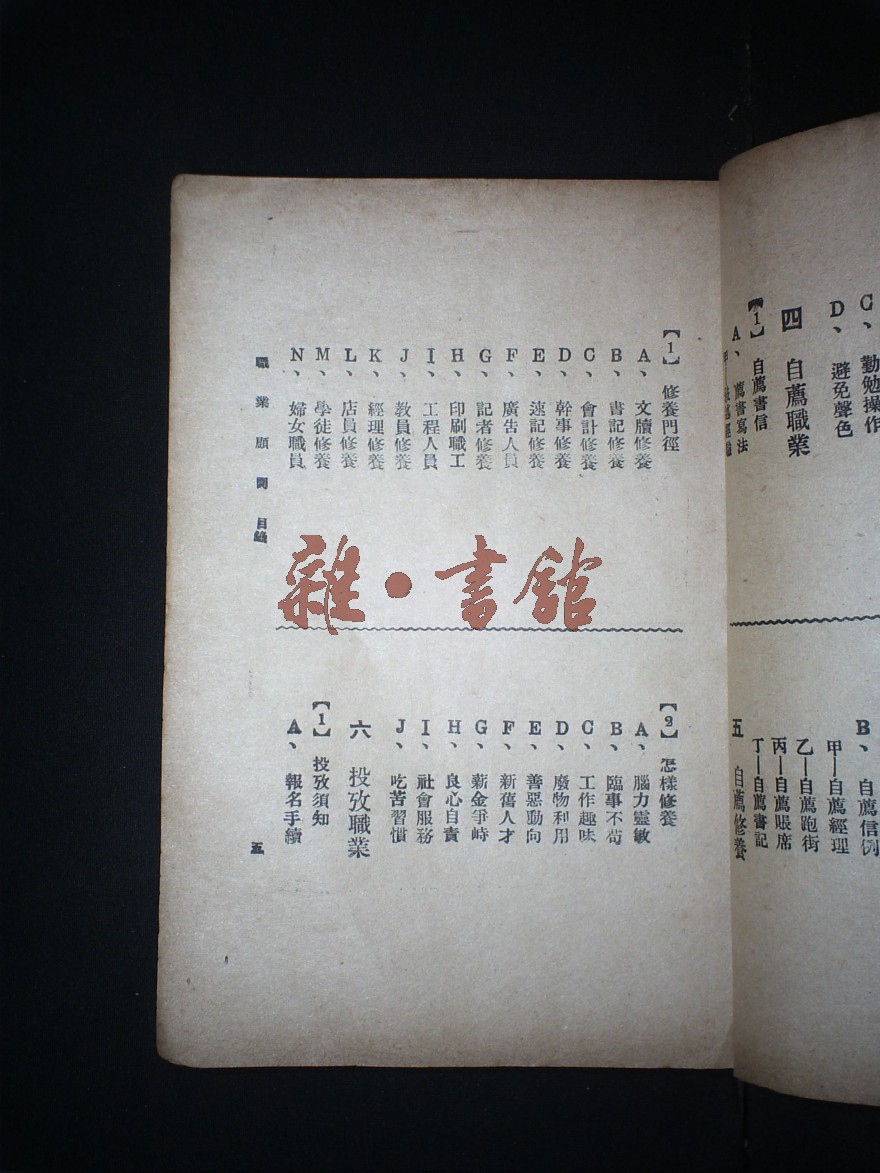 C、勤勉操作
D、避免聲色
四 自薦職業
【1】自薦書信
A、薦書寫法
B、自薦信例
甲—自薦經理
乙—自薦跑街
丙—自薦賬席
丁—自薦書記
五 自薦修養
【1】修養門徑
A、文牘修養
B、書記修養
C、會計修養
D、幹事修養
E、速記修養
F、廣告人員
G、記者修養
H、印刷職工
I、工程人員
J、教員修養
K、經理修養
L、店員修養
M、學徒修養
N、婦女職員
【2】怎樣修養
A、腦力靈敏
B、臨事不苟
C、工作趣味
D、廢物利用
E、善惡動向
F、新舊人才
G、薪金爭峙
H、良心自責
I、社會服務
J、吃苦習慣
六 投攷職業
【1】投攷須知
A、報名手續
職業顧問 目錄
五
雜·書館